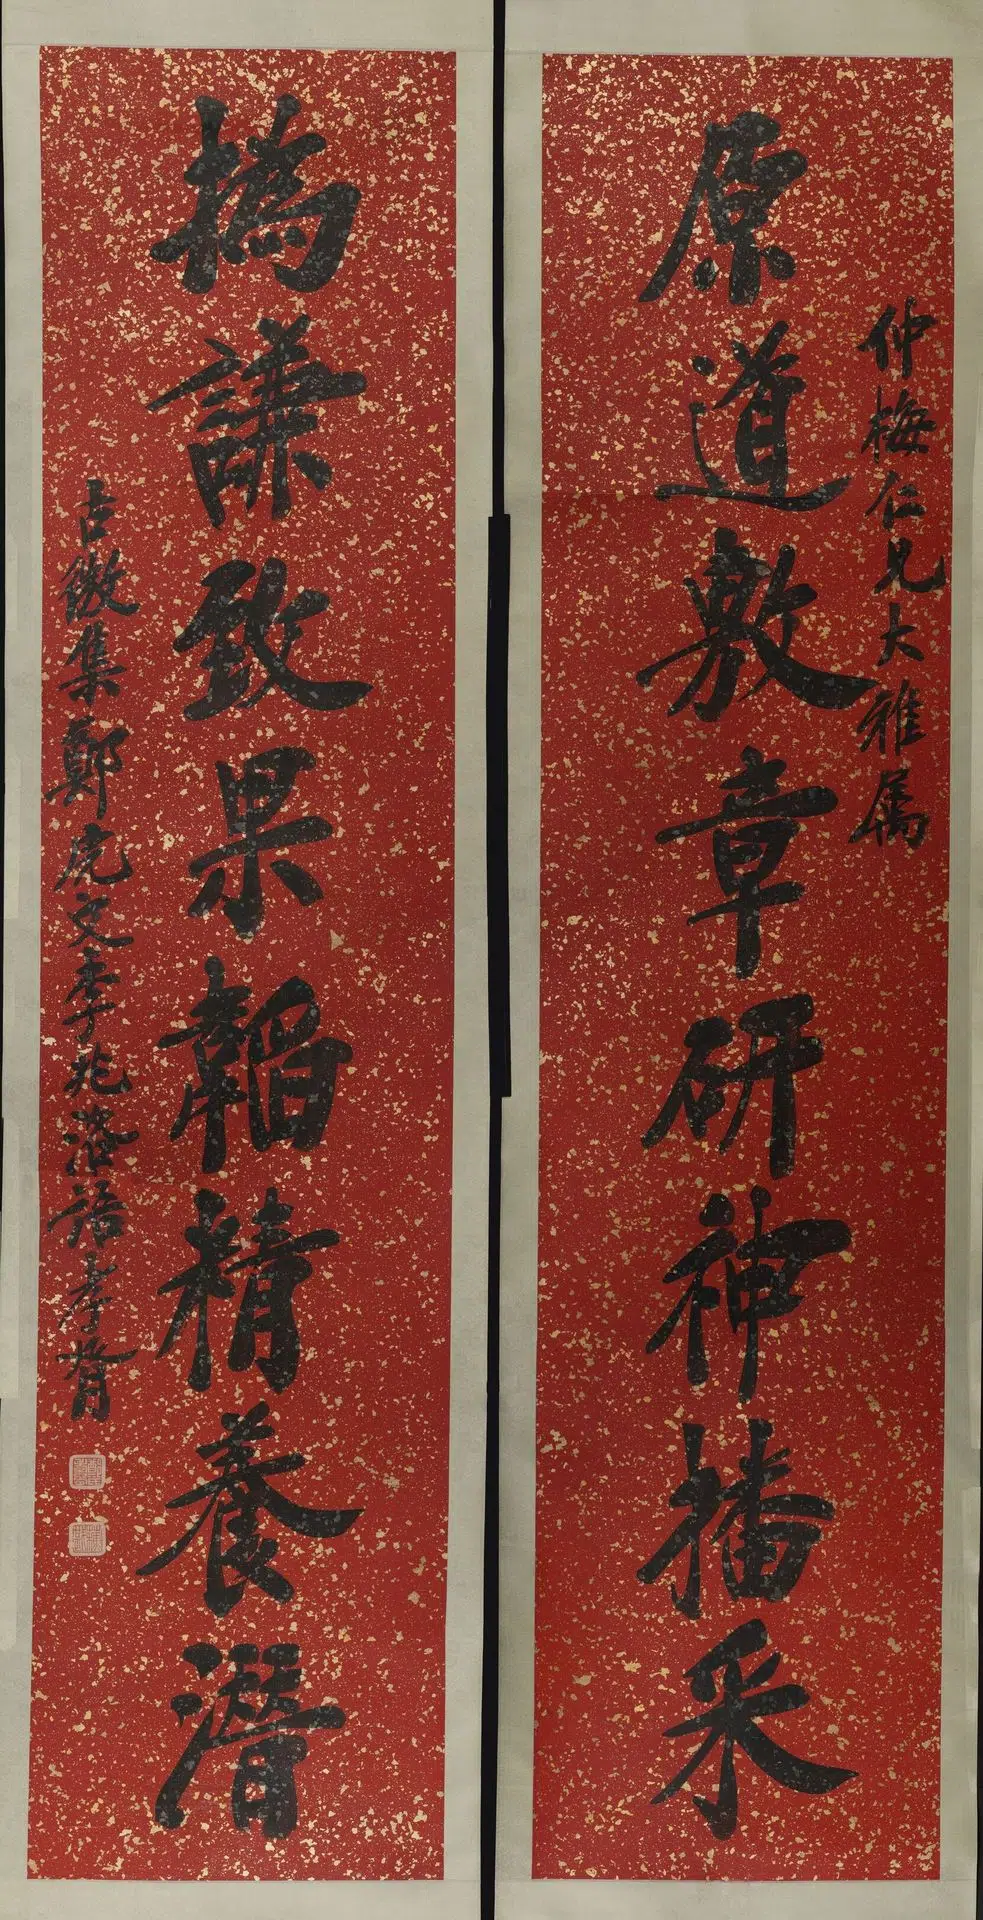 仲梅仁兄大雅属
原道敷章研神播采
撝謙致果韜精養潛
古微集鄭虎文李兆洛語孝胥